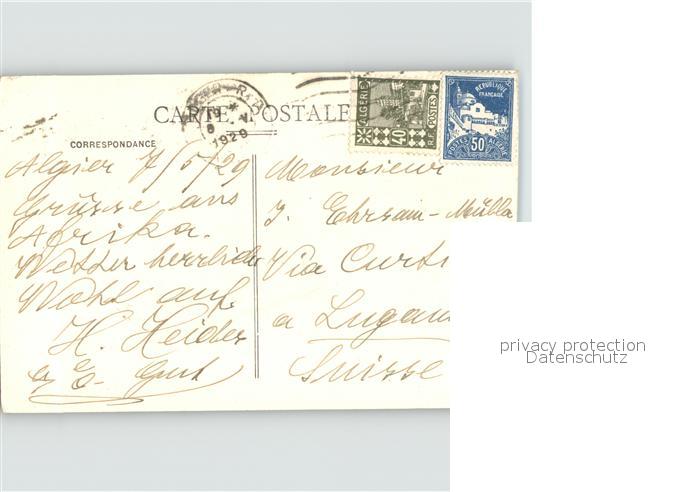 CARTE POSTALE
CORRESPONDANCE
1929
ALGÉRIE
40
R.F. POSTES
RÉPUBLIQUE
FRANÇAISE
50
POSTES ALGÉRIE
Algier 7/5/29
Grüsse aus
Afrika.
Wetter herrlich
Wohl auf.
H. Heider
& E. Gut
Monsieur
J. Ehrsam-Mülle
Via Curti
a Lugan
Suisse
privacy protection
Datenschutz